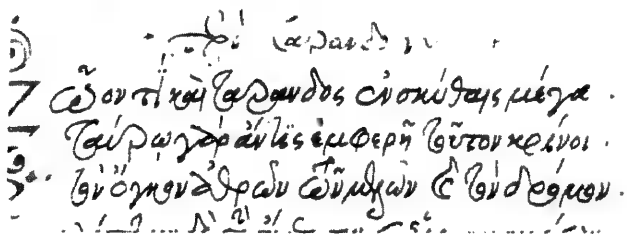 περὶ ταράνδου
Ζῶον τι καὶ τάρανδος ἐν σκύθαις μέγα·
ταύρω γὰρ ἄν τις ἐμφερῆ τοῦτον κρίνοι·
τὸν ὄγκον ἀθρῶν τῶν μελῶν καὶ τὸν δρόμον·